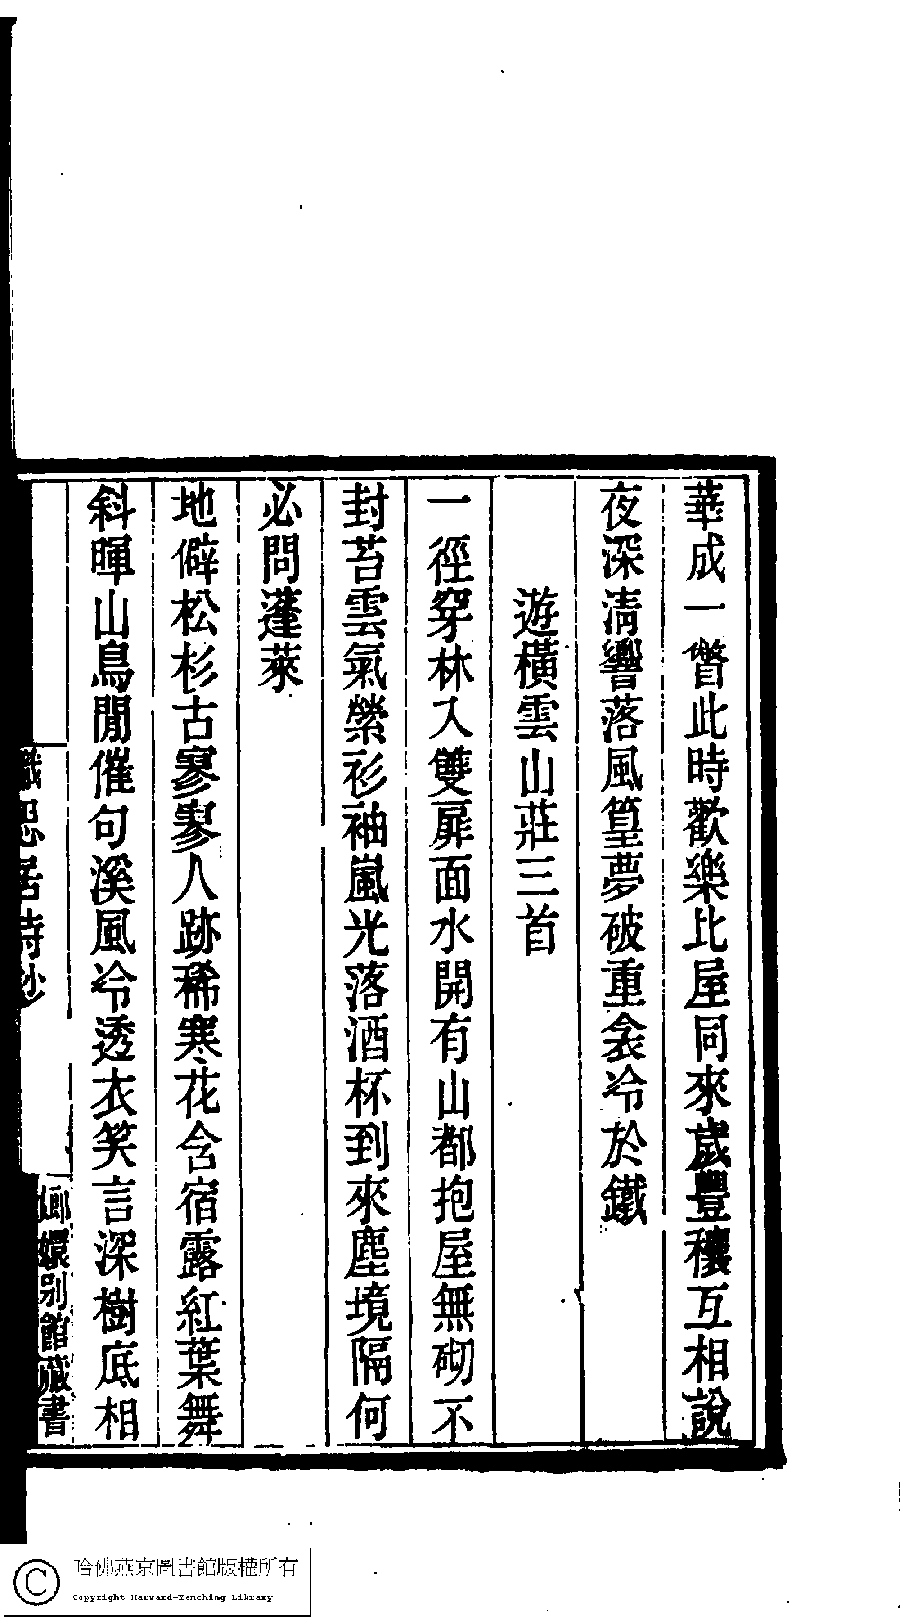 華成一瞥此時歡樂比屋同來歲豐穰互相說
夜深清響落風篁夢破重衾冷於鐵
遊橫雲山莊三首
一徑穿林入雙扉面水開有山都抱屋無砌不
封苔雲氣縈衫袖嵐光落酒杯到來塵境隔何
必問蓬萊
地僻松杉古寥寥人跡稀寒花含宿露紅葉舞
斜暉山鳥閒催句溪風冷透衣笑言深樹底相
思居詩鈔
嫏嬛別館藏書
哈佛燕京圖書館版權所有
Copyright Harvard-Yenching Library